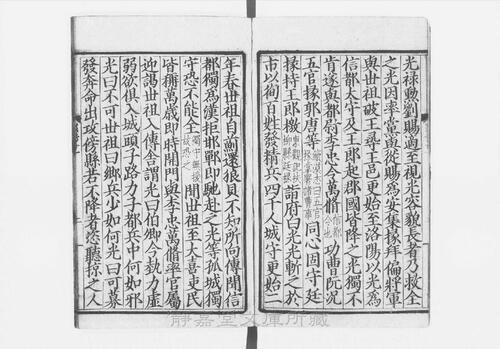 光祿勳劉賜適至視光容貌長者乃救全
之光因率黨與從賜爲安集掾拜偏將軍
與世祖破王尋王邑更始至洛陽以光爲
信都太守及王郎起郡國皆降之光獨不
肯遂與都尉李忠令萬脩功曹阮況
五官掾郭唐等同心固守廷
掾持王郎檄詣府白光光斬之於
市以徇百姓發精兵四千人城守更始二
年春世祖自薊還狼貝不知所向傳聞信
都獨爲漢拒邯鄲即馳赴之光等孤城獨
守恐不能全聞世祖至大喜吏民
皆稱萬歲即時開門與李忠萬脩率官屬
迎謁世祖入傳舍謂光曰伯卿今埶力虛
弱欲俱入城頭子路力子都兵中何如邪
光曰不可世祖曰卿兵少如何光曰可募
發奔命出攻傍縣若不降者恣聽掠之人
靜嘉堂文庫所藏